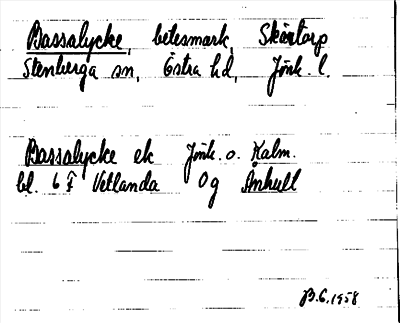 Bassalycke, betesmark, Skärtorp
Stenberga sn, Östra hd, Jönk. l.
Bassalycke ek Jönk. o. Kalm.
bl. 6 F Vetlanda Og Ånhult
B.G. 1958